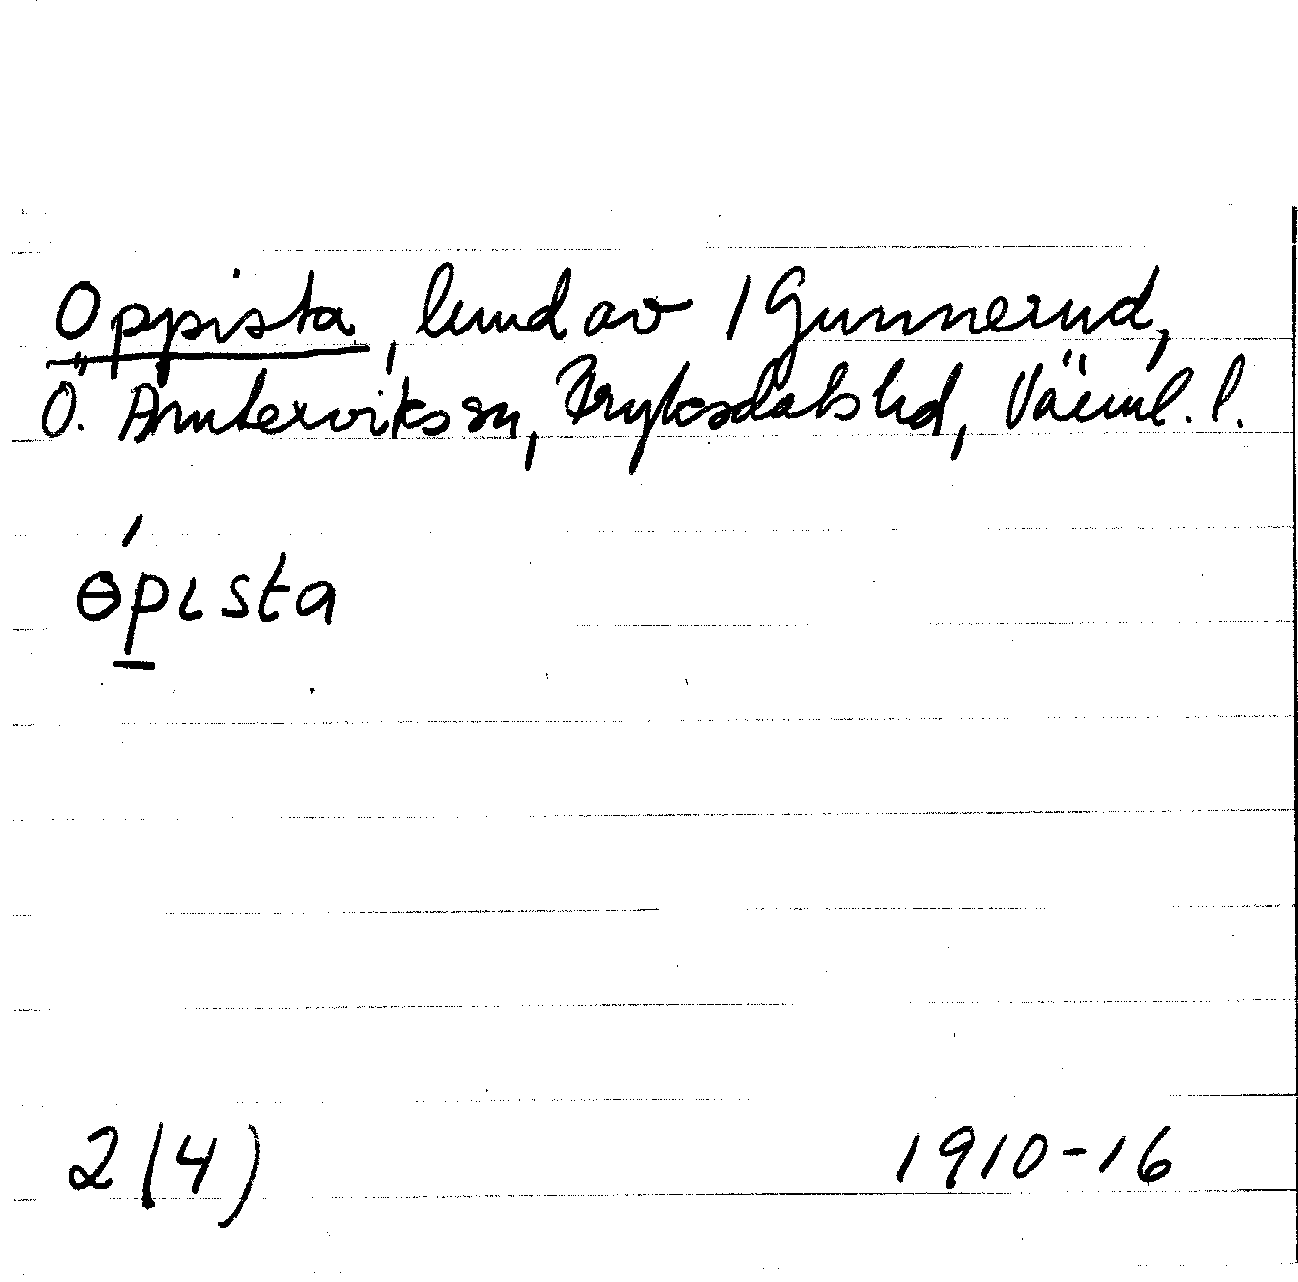 Oppista, lund av 1 Gunnerud,
Ö. Ämterviks sn, Fryksdals hd, Värml. l.
ɵ́pısta
2 (4) 1910-16